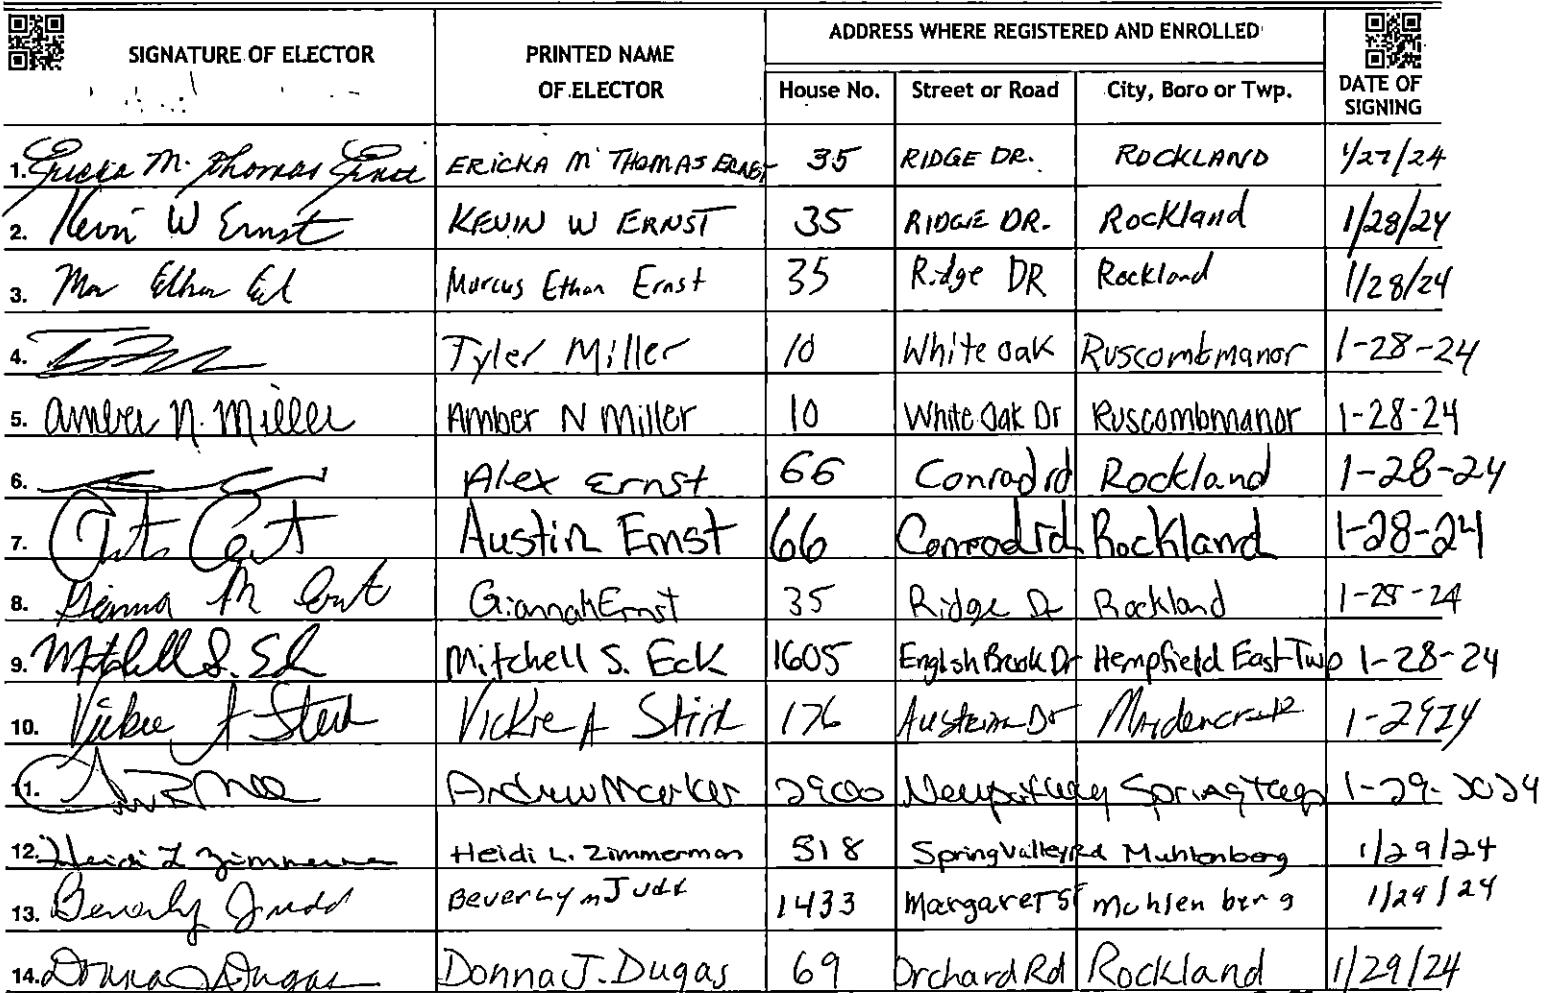 ADDRESS WHERE REGISTERED AND ENROLLED
SIGNATURE OF ELECTOR PRINTED NAME OF ELECTOR House No. Street or Road City, Boro or Twp. DATE OF SIGNING
1. Ericka M. Thomas Ernst ERICKA M THOMAS ERNST 35 RIDGE DR. ROCKLAND 1/27/24
2. Kevin W Ernst KEVIN W ERNST 35 RIDGE DR. Rockland 1/28/24
3. Marcus Ethan Ernst 35 Ridge DR Rockland 1/28/24
4. Tyler Miller 10 White oak Ruscombmanor 1-28-24
5. Amber N. Miller Amber N Miller 10 White Oak Dr Ruscombmanor 1-28-24
6. Alex Ernst 66 Conrad rd Rockland 1-28-24
7. Austin Ernst 66 Conrad rd Rockland 1-28-24
8. Gianna M Giannah Ernst 35 Ridge Dr Rockland 1-28-24
9. Mitchell S. Eck Mitchell S. Eck 1605 English Brook Dr Hempfield East Twp 1-28-24
10. Vickie A Vickie A 176 Dr Maidencreek
11. Andrew Merker 2900 Spring 1-29-2024
12. Heidi L Zimmerman Heidi L. Zimmerman 518 Spring Valley Rd Muhlenberg 1/29/24
13. Beverly Judd Beverly M Judd 1433 Margaret St Muhlenberg 1/29/24
14. Donna J Dugas Donna J. Dugas 69 Orchard Rd Rockland 1/29/24